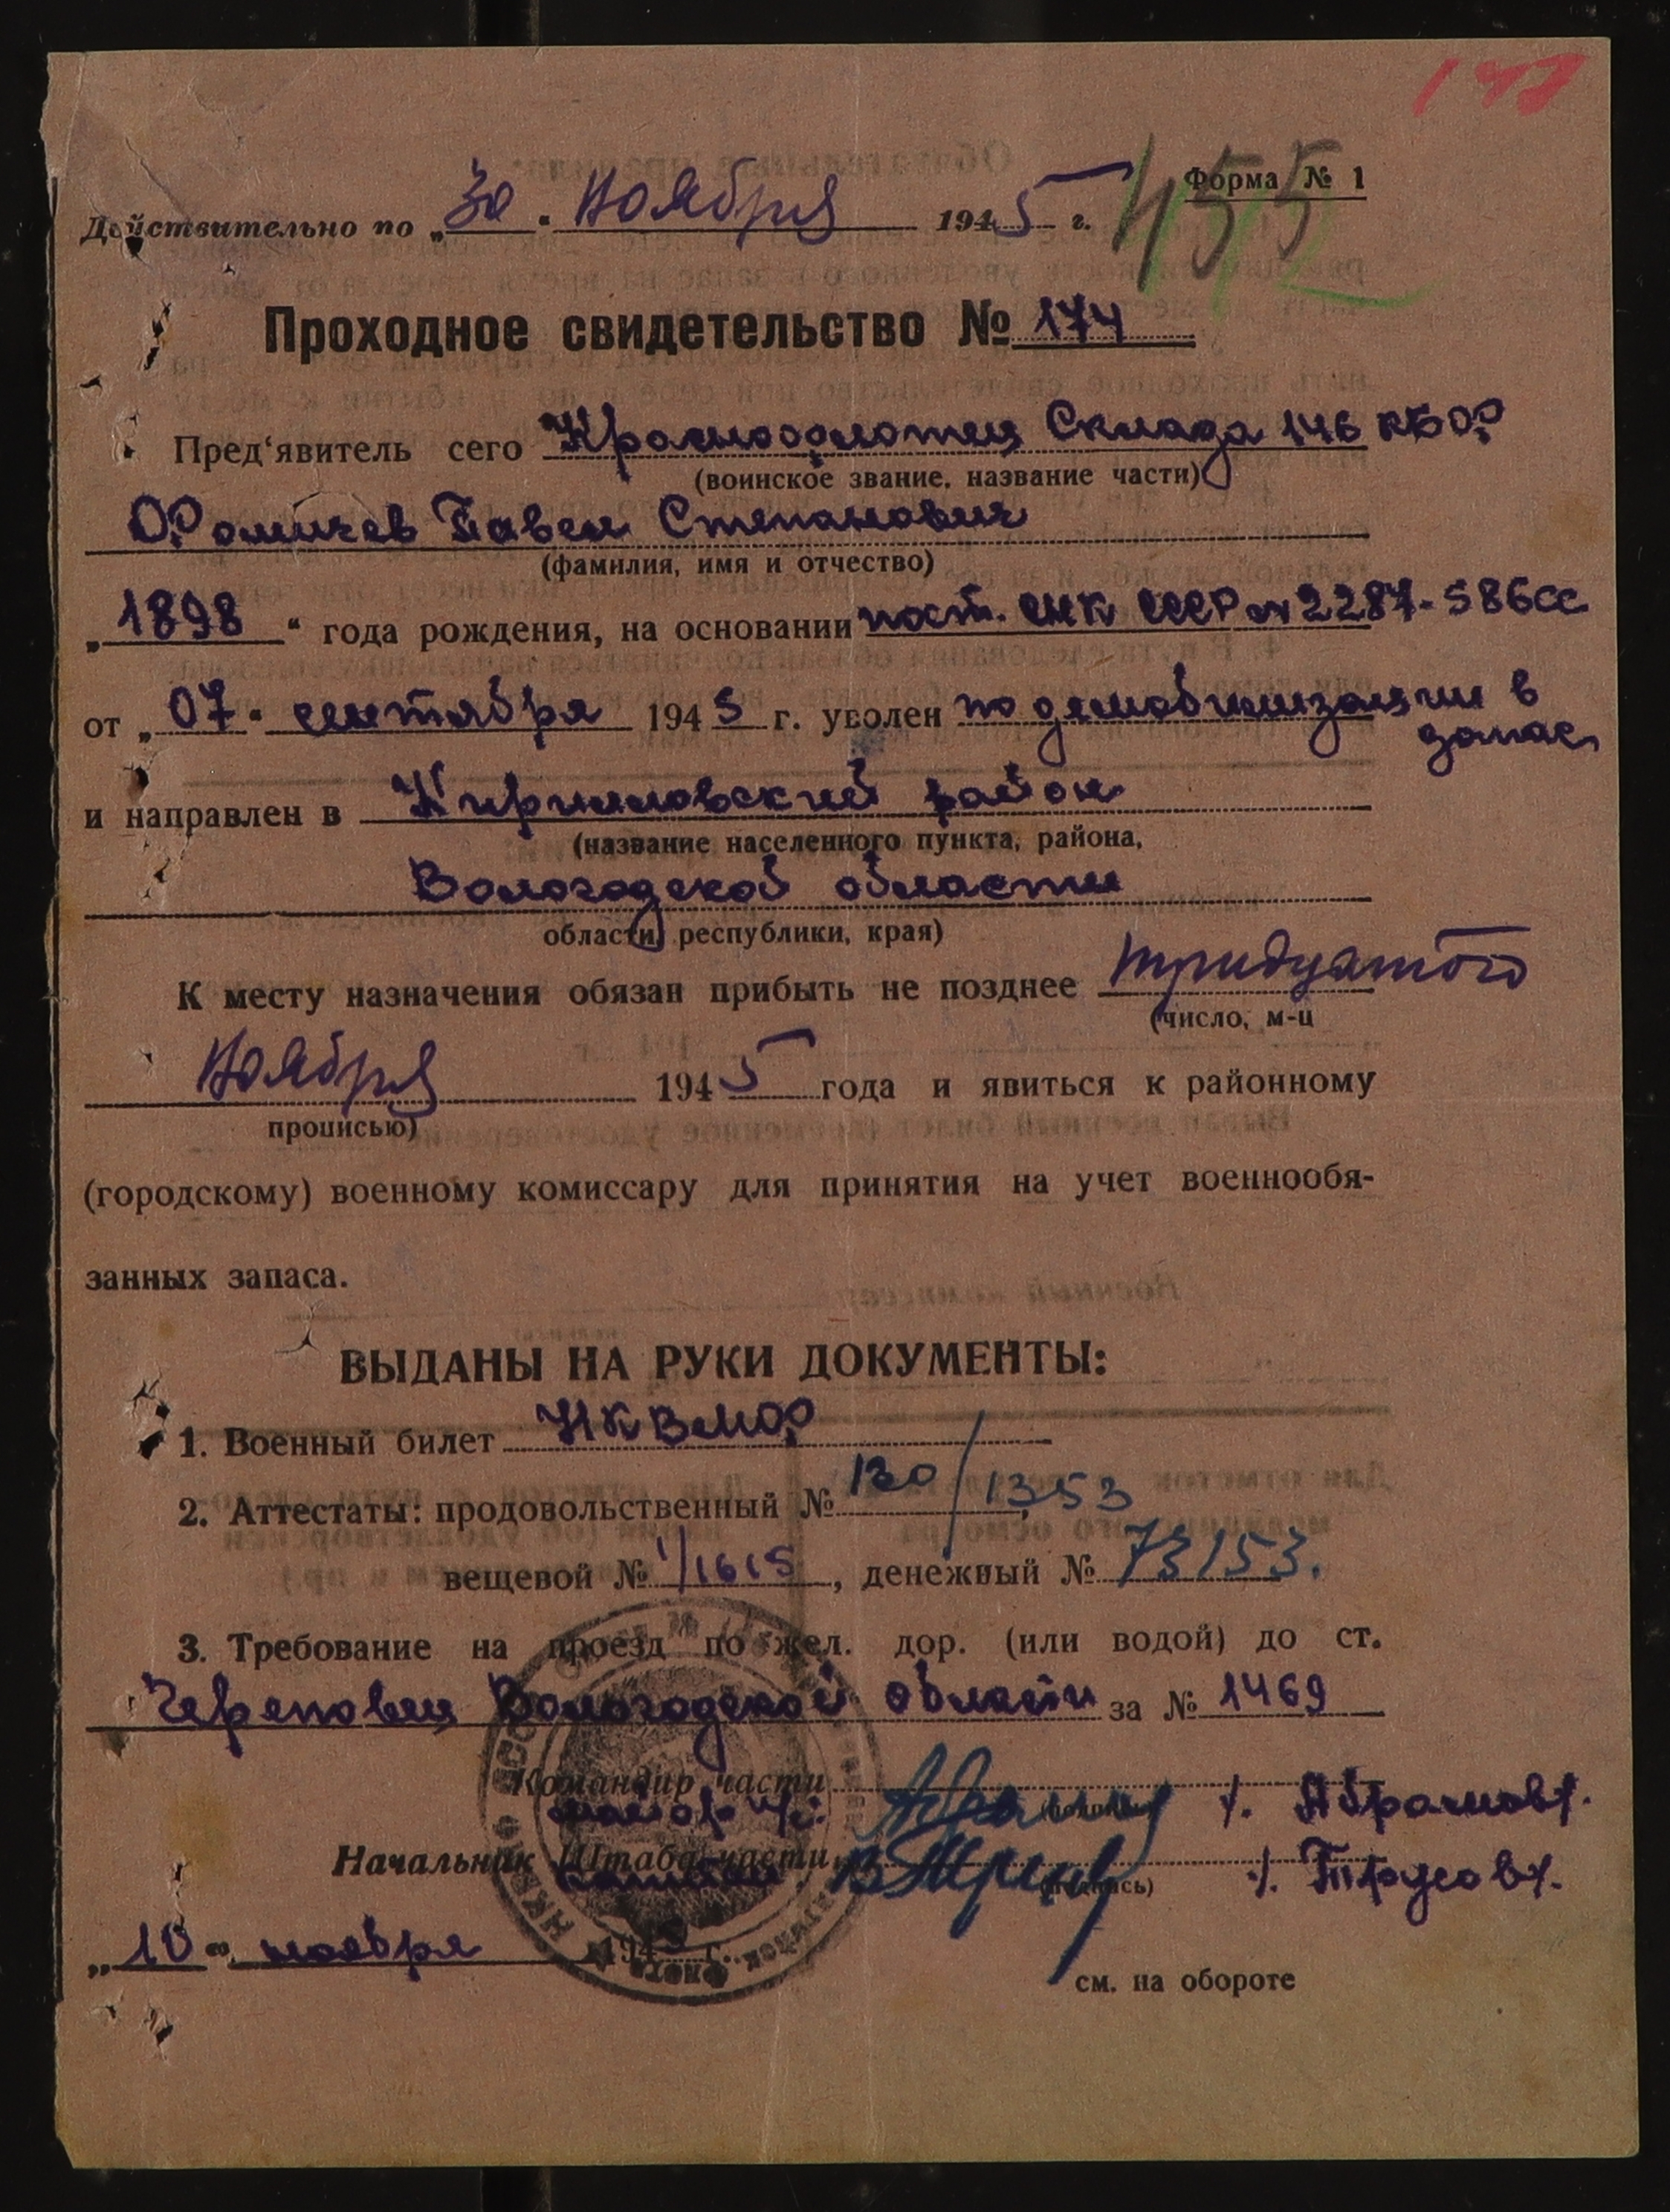 Форма № 1
455
Действительно по „30" Ноября 1945 г.
Проходное свидетельство № 174
Пред'явитель сего Краснофлотец Склада 146 КБФ
(воинское звание, название части)
Фомичев Павел Степанович
(фамилия, имя и отчество)
„1898" года рождения, на основании пост. СНК СССР № 2287-586сс
от „07" сентября 1945 г. уволен по демобилизации в
запас
и направлен в Кирилловский район
(название населенного пункта, района,
Вологодской области
области, республики, края)
К месту назначения обязан прибыть не позднее тридцатого
(число, м-ц
Ноября 1945 года и явиться к районному
прописью)
(городскому) военному комиссару для принятия на учет военнообя-
занных запаса.
ВЫДАНЫ НА РУКИ ДОКУМЕНТЫ:
1. Военный билет НКВМФ
2. Аттестаты: продовольственный № 130/1353,
вещевой № 1/1615, денежный № 73153.
3. Требование на проезд по жел. дор. (или водой) до ст.
Череповец Вологодской области за № 1469
Командир части
майор /. Абрамов/.
Начальник Штаба части
капитан /. Трусов/.
(подпись)
„10" ноября 1945 г.
см. на обороте